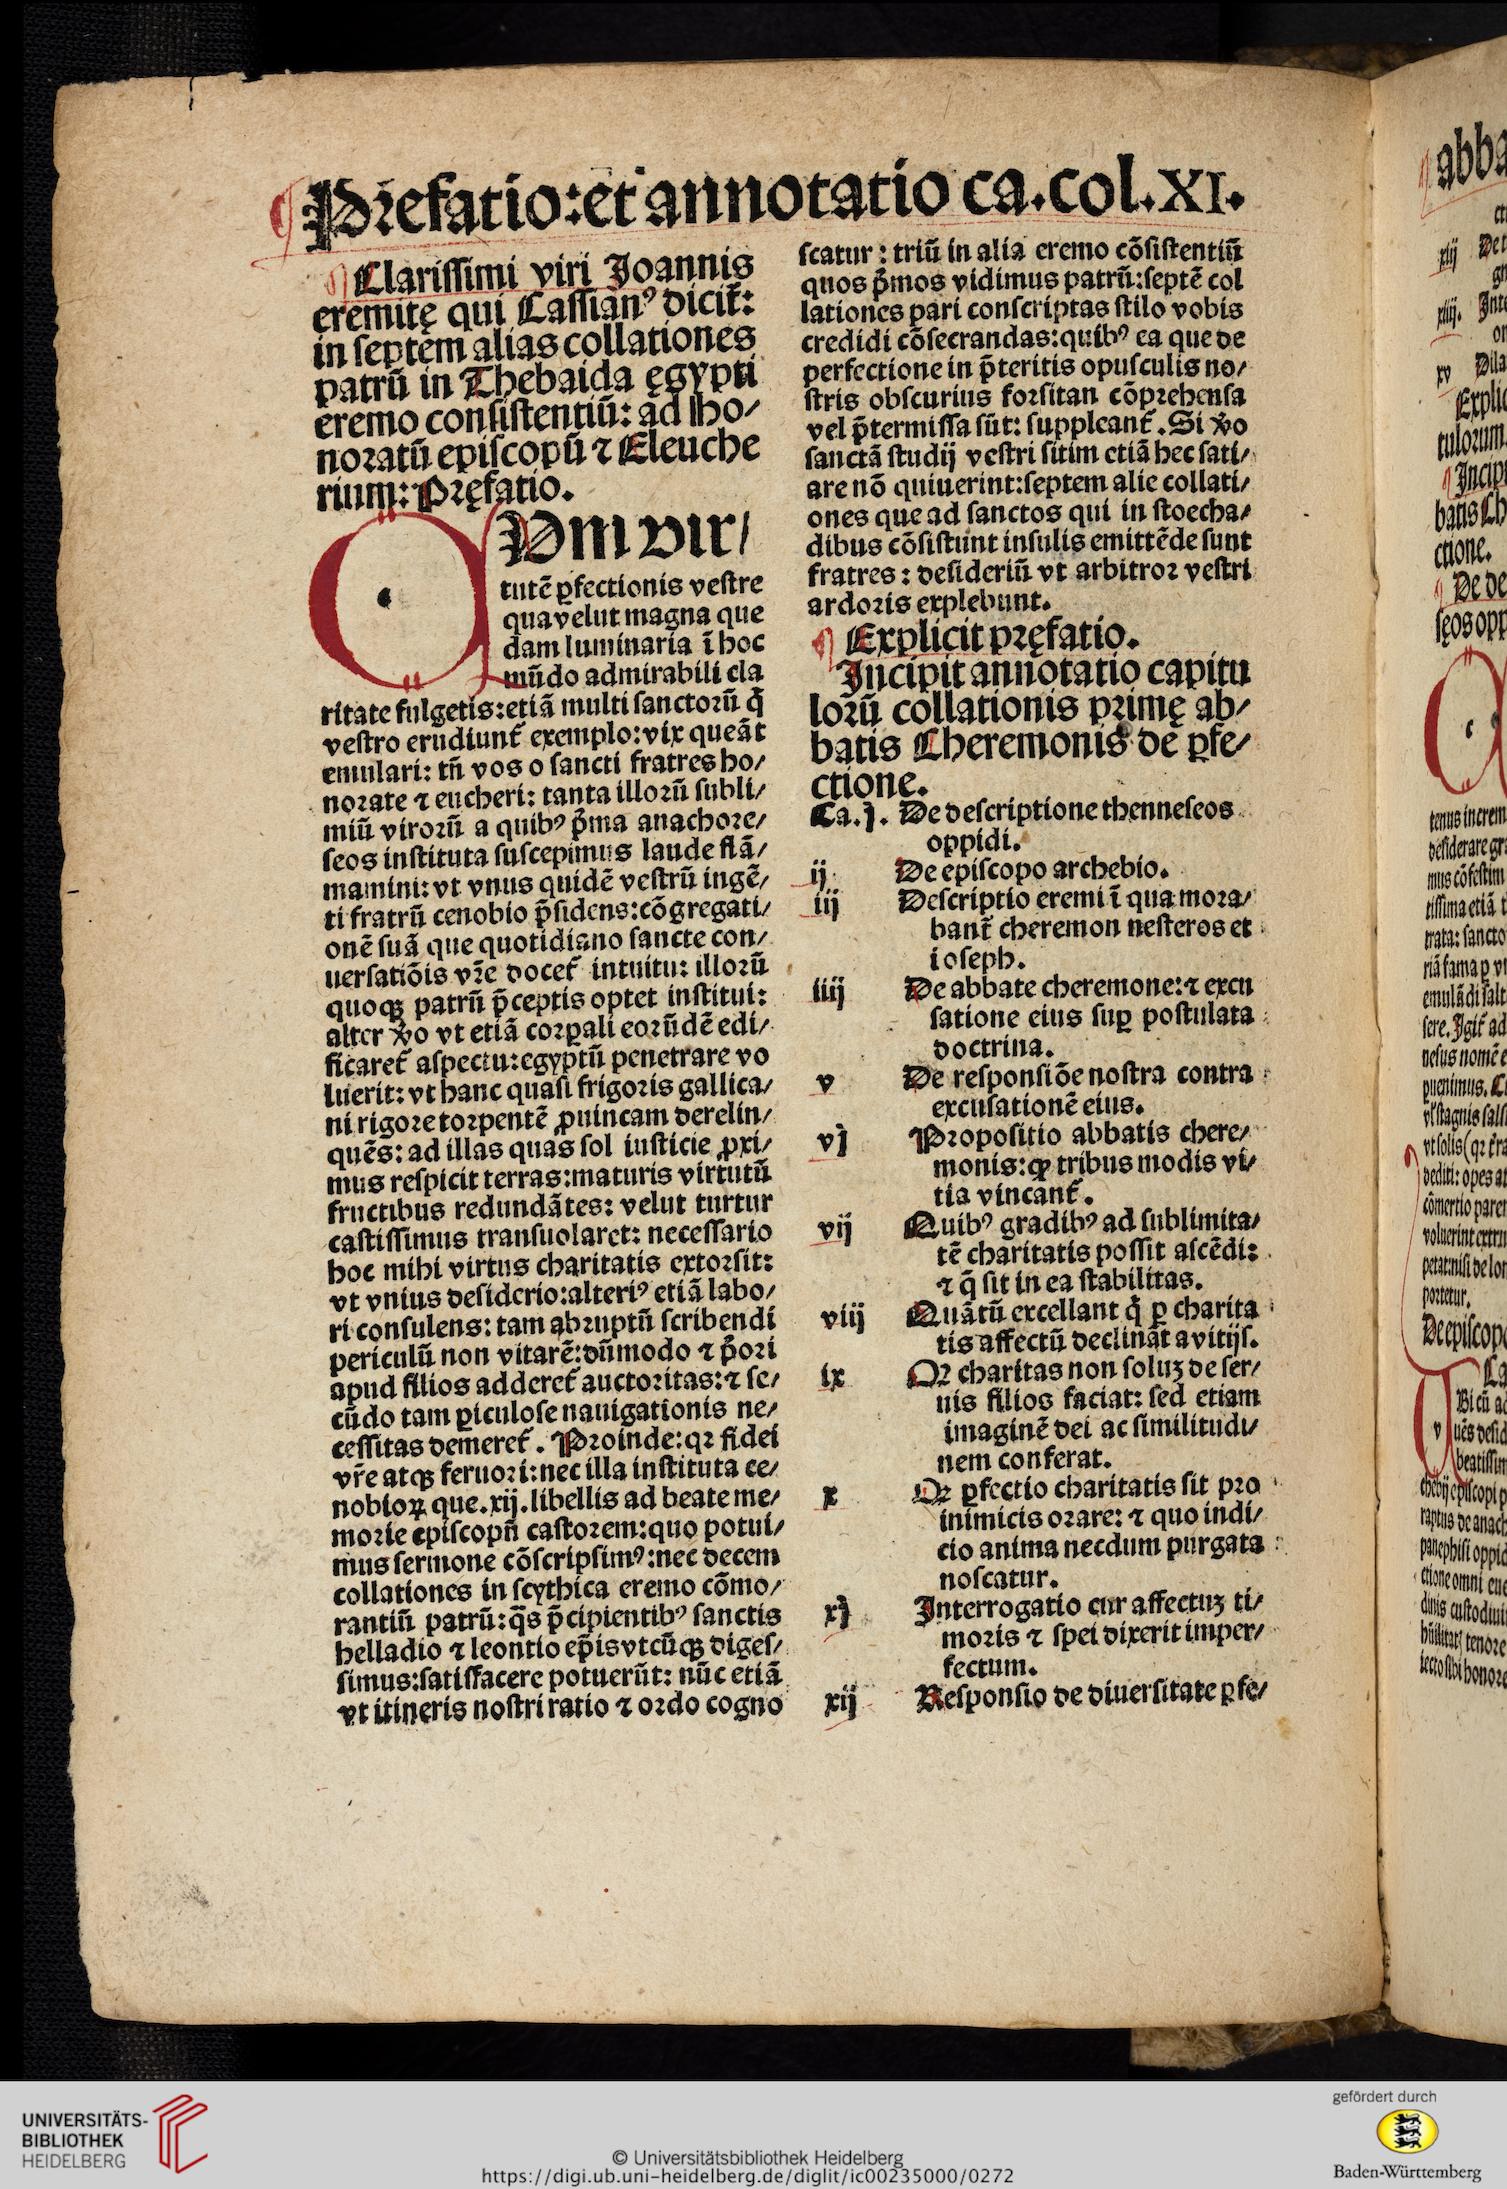 ¶ Prefatio: et annotatio ca. col. XI.
¶ Clarissimi viri Joannis
eremitę qui Cassianꝰ dicit᷑:
in septem alias collationes
patrū in Thebaida ęgypti
eremo consistentiū: ad ho⸗
noratū episcopū ⁊ Eleuche
rium: Pręfatio.
OPm vir⸗
tutē ꝑfectionis vestre
qua velut magna que
dam luminaria ī hoc
mūdo admirabili cla
ritate fulgetis: etiā multi sanctorū q̄
vestro erudiunt᷑ exemplo: vix queāt
emulari: tn̄ vos o sancti fratres ho⸗
norate ⁊ eucheri: tanta illorū subli⸗
miū virorū a quibꝰ p̄ma anachore⸗
seos instituta suscepimus laude flā⸗
mamini: vt vnus quidē vestrū ingē⸗
ti fratrū cenobio p̄sidens: cōgregati⸗
onē suā que quotidiano sancte con⸗
uersatiōis vr̄e docet᷑ intuitu: illorū
quoqꝫ patrū p̄ceptis optet institui:
alter v̄o vt etiā corꝑali eorūdē edi⸗
ficaret᷑ aspectu: egyptū penetrare vo
luerit: vt hanc quasi frigoris gallica⸗
ni rigore torpentē ꝓuincam derelin⸗
quēs: ad illas quas sol iusticie ꝓxi⸗
mus respicit terras: maturis virtutū
fructibus redundātes: velut turtur
castissimus transuolaret: necessario
hoc mihi virtus charitatis extorsit:
vt vnius desiderio: alteriꝰ etiā labo⸗
ri consulens: tam abruptū scribendi
periculū non vitarē: dūmodo ⁊ p̄ori
apud filios adderet᷑ auctoritas: ⁊ se⸗
cūdo tam ꝑiculose nauigationis ne⸗
cessitas demeret᷑. Proinde: qꝛ fidei
vr̄e atqꝫ feruori: nec illa instituta ce⸗
nobioꝝ que .xij. libellis ad beate me⸗
morie episcopū castorem: quo potui⸗
mus sermone cōscripsimꝰ: nec decem
collationes in scythica eremo cōmo⸗
rantiū patrū: q̄s p̄cipientibꝰ sanctis
helladio ⁊ leontio ep̄is vtcūqꝫ diges⸗
simus: satisfacere potuerūt: nūc etiā
vt itineris nostri ratio ⁊ ordo cogno
scatur: triū in alia eremo cōsistentiū
quos p̄mos vidimus patrū: septē col
lationes pari conscriptas stilo vobis
credidi cōsecrandas: quibꝰ ea que de
perfectione in p̄teritis opusculis no⸗
stris obscurius forsitan cōprehensa
vel p̄termissa sūt: suppleant᷑. Si v̄o
sanctā studij vestri sitim etiā hec sati⸗
are nō quiuerint: septem alie collati⸗
ones que ad sanctos qui in stoecha⸗
dibus cōsistunt insulis emittēde sunt
fratres: desideriū vt arbitror vestri
ardoris explebunt.
¶ Explicit pręfatio.
Incipit annotatio capitu
lorū collationis primę ab⸗
batis Cheremonis de ꝑfe⸗
ctione.
Ca. j. De descriptione thenneseos
oppidi.
ij De episcopo archebio.
iij Descriptio eremi ī qua mora⸗
bant᷑ cheremon nesteros et
ioseph.
iiij De abbate cheremone: ⁊ excu
satione eius suꝑ postulata
doctrina.
v De responsiōe nostra contra
excusationē eius.
vj Propositio abbatis chere⸗
monis: ꝙ tribus modis vi⸗
tia vincant᷑.
vij Quibꝰ gradibꝰ ad sublimita⸗
tē charitatis possit ascēdi:
⁊ q̄ sit in ea stabilitas.
viij Quātū excellant q̄ ꝑ charita
tis affectū declināt a vitijs.
ix Qꝛ charitas non soluꝫ de ser⸗
uis filios faciat: sed etiam
imaginē dei ac similitudi⸗
nem conferat.
x Qꝛ ꝑfectio charitatis sit pro
inimicis orare: ⁊ quo indi⸗
cio anima necdum purgata
noscatur.
xj Interrogatio cur affectuꝫ ti⸗
moris ⁊ spei dixerit imper⸗
fectum.
xij Responsio de diuersitate ꝑfe⸗
abba
xiij
xiiij.
xv
Explic
tulorum
¶ Incipi
batis Ch
ctione.
¶ De de
seos opp
tenus increm
desiderare gr
mus cōfestim
tissima etiā t
trata: sancto
riā fama ꝑ v
emulādi salt
sere. Igit᷑ ad
nesus nomē e
De episcop
UNIVERSITÄTS-
BIBLIOTHEK
HEIDELBERG
© Universitätsbibliothek Heidelberg
https://digi.ub.uni-heidelberg.de/diglit/ic00235000/0272
gefördert durch
Baden-Württemberg